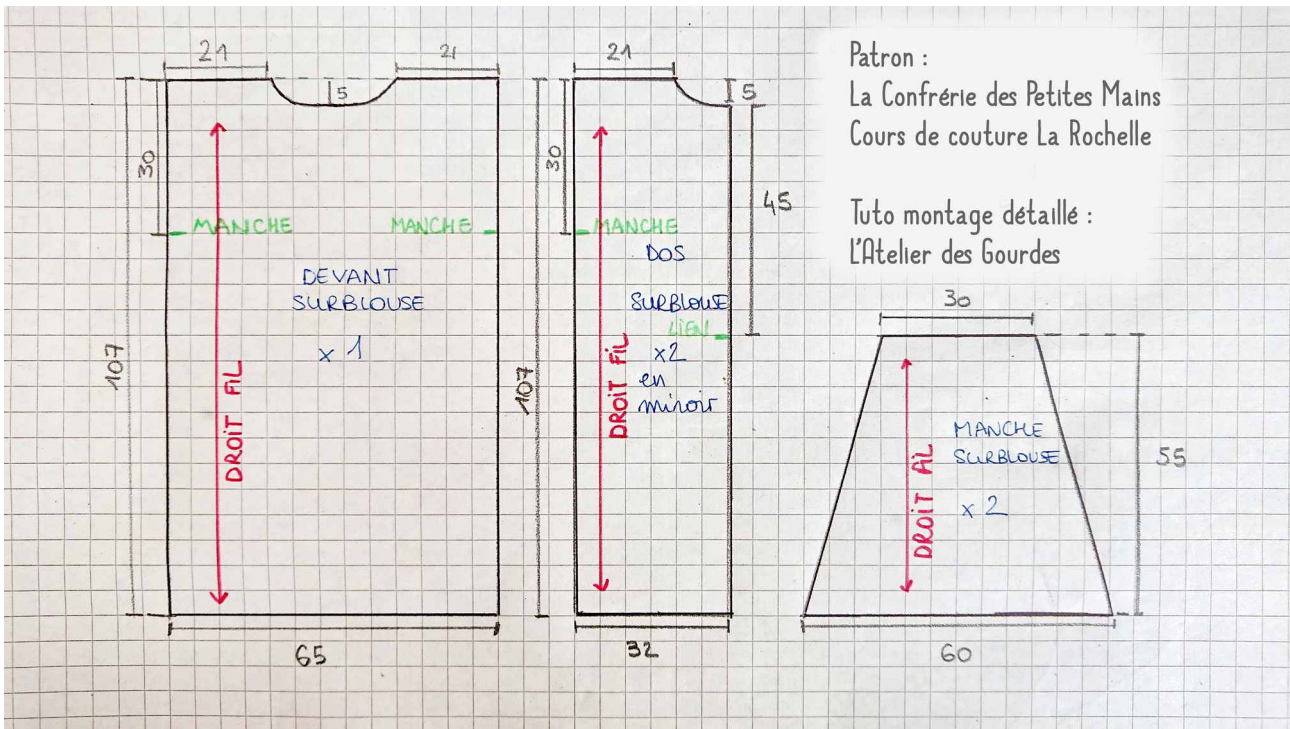 21
21
5
30
107
MANCHE
MANCHE
DEVANT
SURBLOUSE
x 1
DROIT FIL
65
21
5
30
107
45
MANCHE
DOS
SURBLOUSE
LIEN
x2
en
miroir
DROIT FIL
32
Patron :
La Confrérie des Petites Mains
Cours de couture La Rochelle
Tuto montage détaillé :
L'Atelier des Gourdes
30
MANCHE
SURBLOUSE
x 2
DROIT FIL
55
60